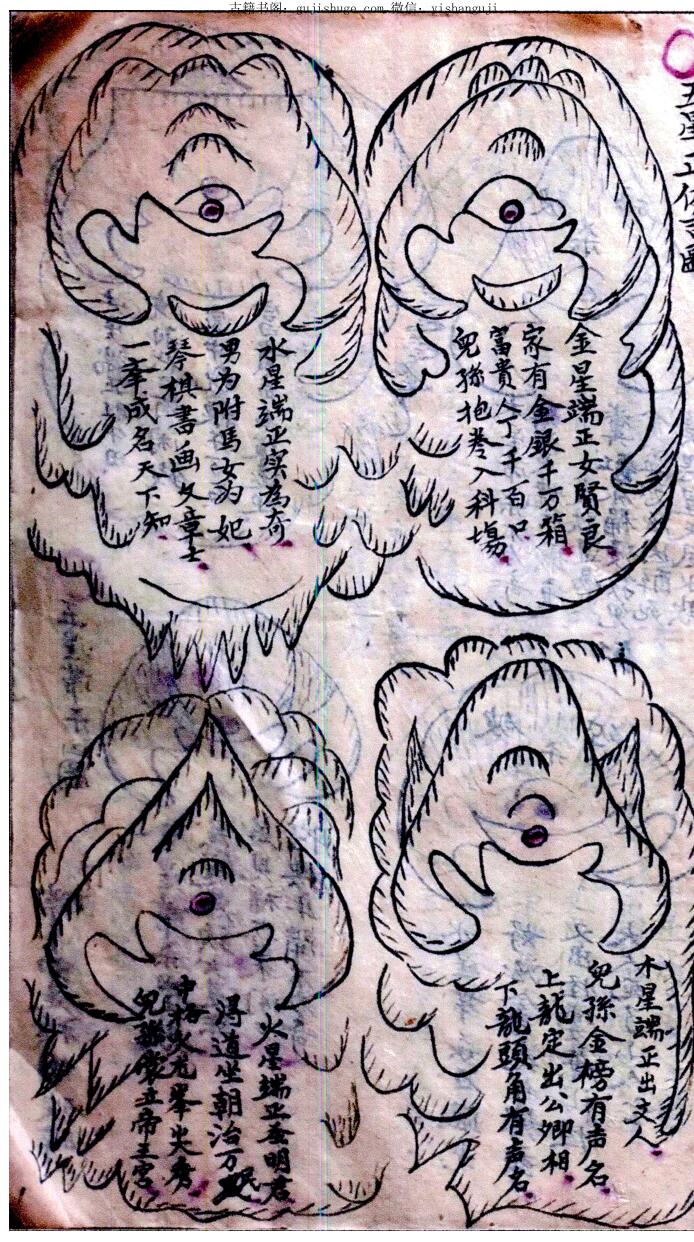 古籍书阁：gujishuge.com 微信：yishanguji
五星正体吉
金星端正女賢良
家有金銀千万箱
富貴人丁千百口
兒孫抱卷入科場
水星端正实為奇
男为附馬女为妃
琴棋書画文章士
一举成名天下知
木星端正出文人
兒孫金榜有声名
上龍定出公卿相
下龍頭角有声名
火星端正 明君
得道坐朝治万民
中 火元举出秀
兒孫 立帝王宫